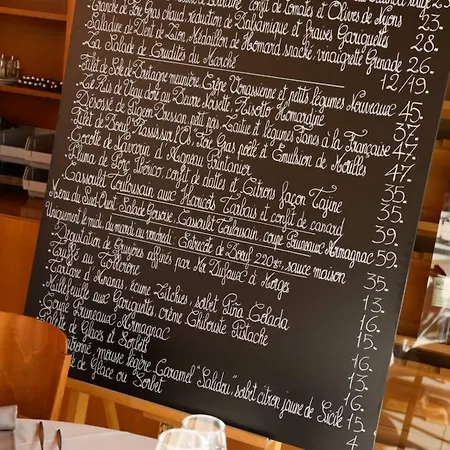 confit de Tomate et Olives de Nyons 23.
Gras chaud, réduction de Balsamique et fraises Gariguettes 23.
Saladine de Dent de Lion, Médaillon de Homard snacké, vinaigrette Grenade 28.
La Salade de Crudités du Marché 26.
12/19.
Filet de Sole de Bretagne meunière, Crêpe Vonassienne et petits légumes Nouveaux 45.
Le Ris de Veau doré au Beurre Noisette, Risotto Homardine 37.
Désossé de Pigeon Bressan, petit pois Zaatie et légumes Fanes à la Française 47.
Filet de Boeuf Massissa l'Os, Foie Gras poêlé et Emulsion de Morilles 47.
Cocotte de Lavourin d'Agneau Printanier 35.
Pluma de Porc Ibérico, confit de dattes et Citrons façon Tajine 35.
Cassoulet Toulousain aux Haricots Tarbais et confit de canard 39.
Menu du Sud-Ouest, Salade Gersoise, Cassoulet Toulousain, coupe Pruneaux Armagnac 59.
Uniquement le midi du mardi au vendredi: Entrecôte de Boeuf 220gr, sauce maison 35.
Dégustation de Gruyères affinés par Mr Dufaux à Morges 13.
Truffé au Toblerone 16.
Tartare d'Ananas, écume Litchies, sorbet Pina Colada 15.
Millefeuille aux Gariguettes, crème Chiboust Pistache 16.
Coupe Pruneaux Armagnac 13.
de Glaces et Sorbets 16.
mousse légère Caramel "Salidou", sorbet citron jaune de Sicile 15.
de Glace ou Sorbet 4.